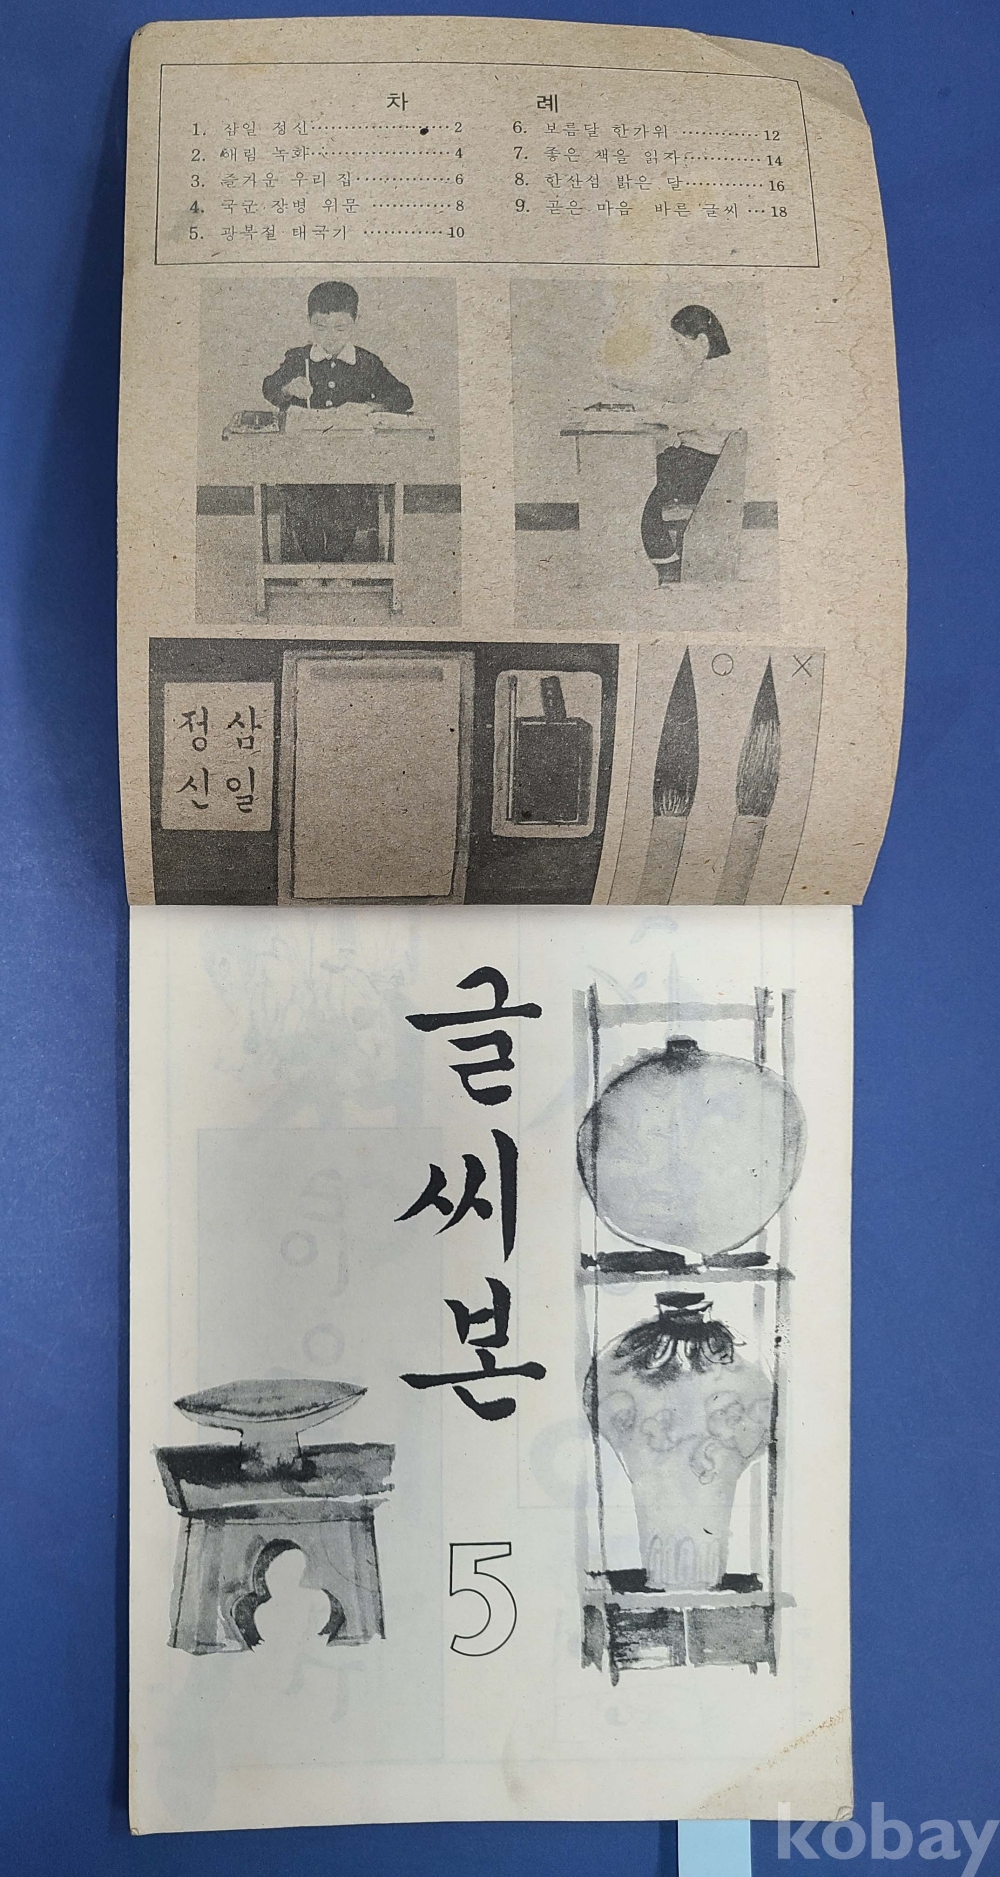 차 례
1. 삼일 정신 2
2. 애림 녹화 4
3. 즐거운 우리 집 6
4. 국군 장병 위문 8
5. 광복절 태극기 10
6. 보름달 한가위 12
7. 좋은 책을 읽자 14
8. 한산섬 밝은 달 16
9. 곧은 마음 바른 글씨 18
삼일
정신
글씨본
5
kobay